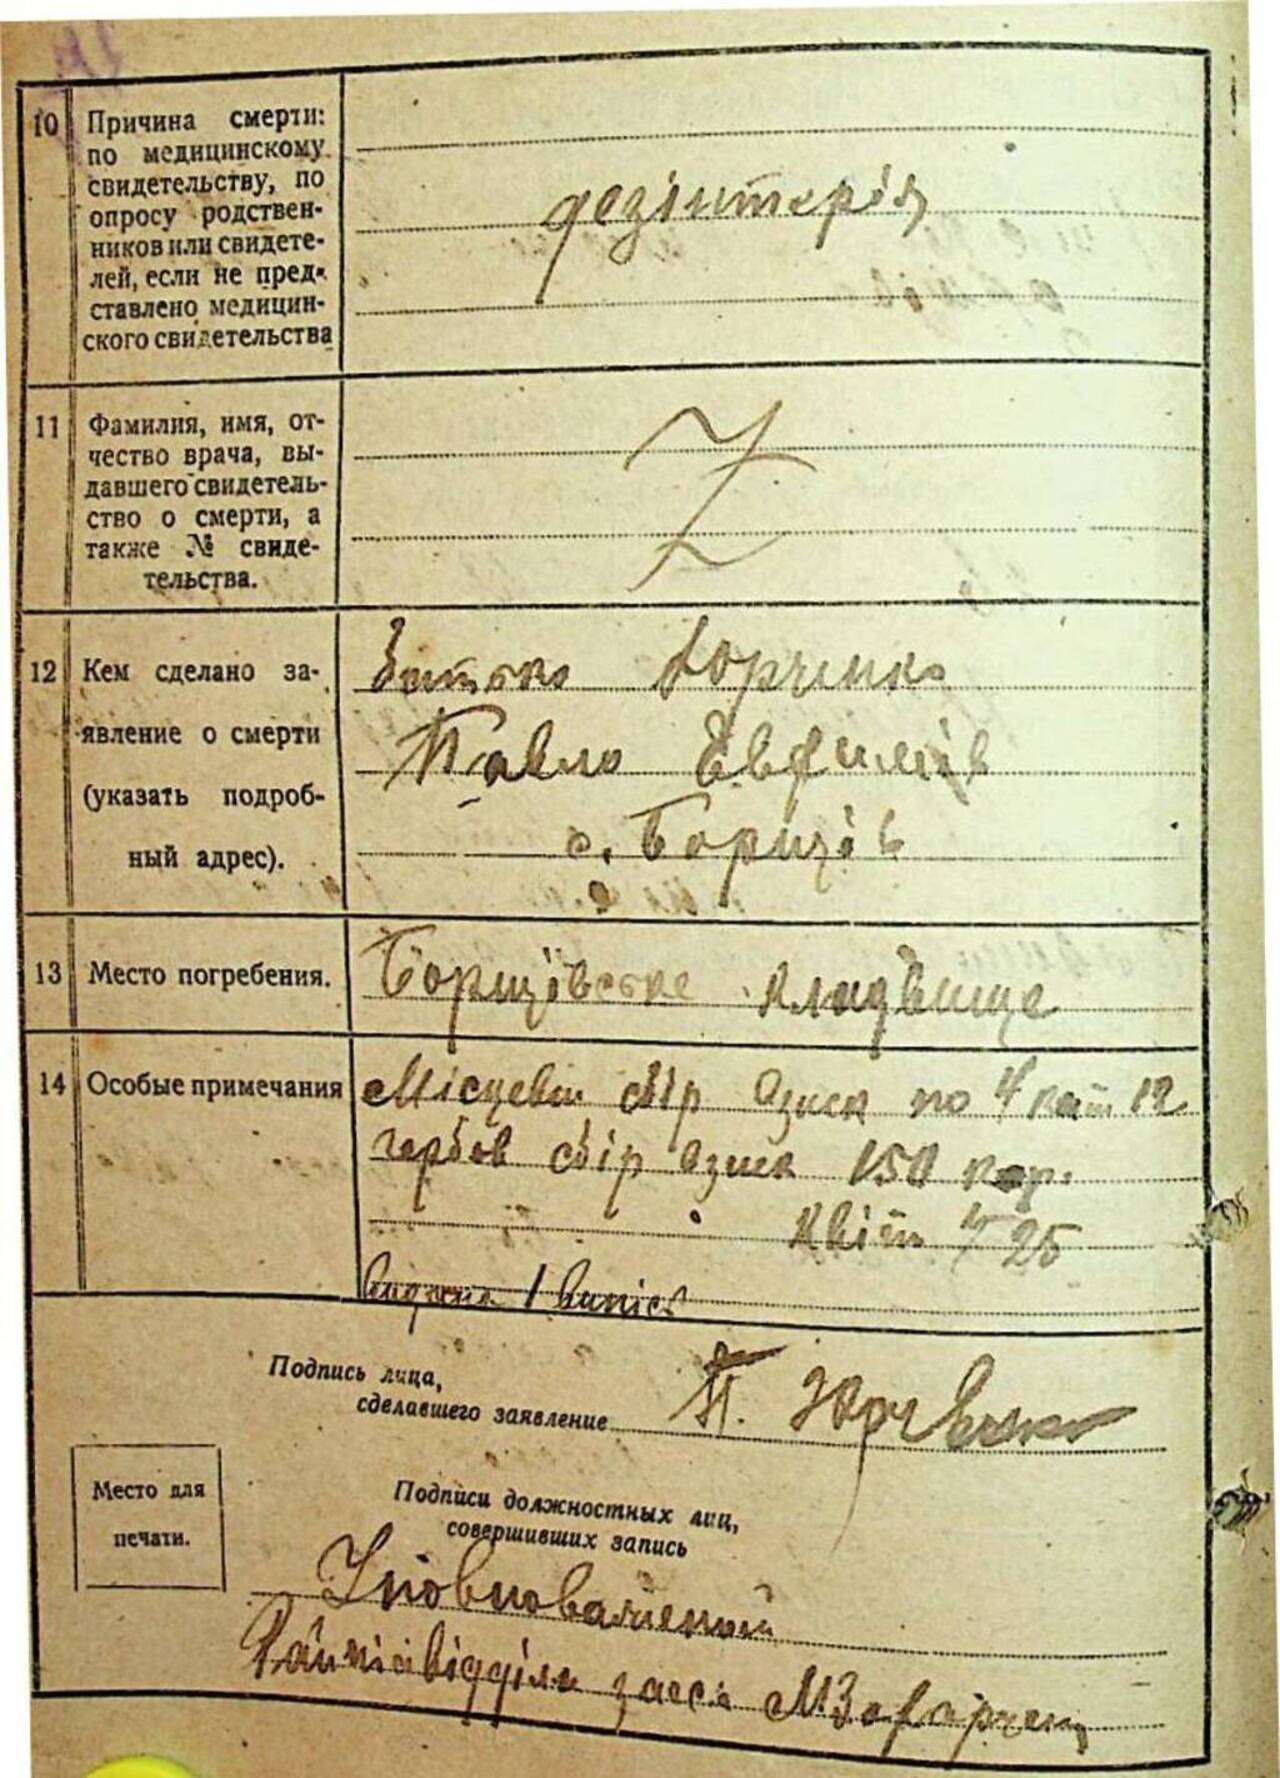 10 Причина смерти:
по медицинскому
свидетельству, по
опросу родствен-
ников или свидете-
лей, если не пред-
ставлено медицин-
ского свидетельства
дезінтерія
11 Фамилия, имя, от-
чество врача, вы-
давшего свидетель-
ство о смерти, а
также № свиде-
тельства.
Z
12 Кем сделано за-
явление о смерти
(указать подроб-
ный адрес).
батько Юрченко
Павло Евфимів
с. Борщів
13 Место погребения.
Борщівське кладвище
14 Особые примечания
Місцевии сбір Озиск по 4 квит 12
гербов сбір Озиск 150 кар.
Квіт 25
видана 1 випісь
Подпись лица,
сделавшего заявление
П. Юрченко
Место для
печати.
Подписи должностных лиц,
совершивших запись
Уповноважений
загсь